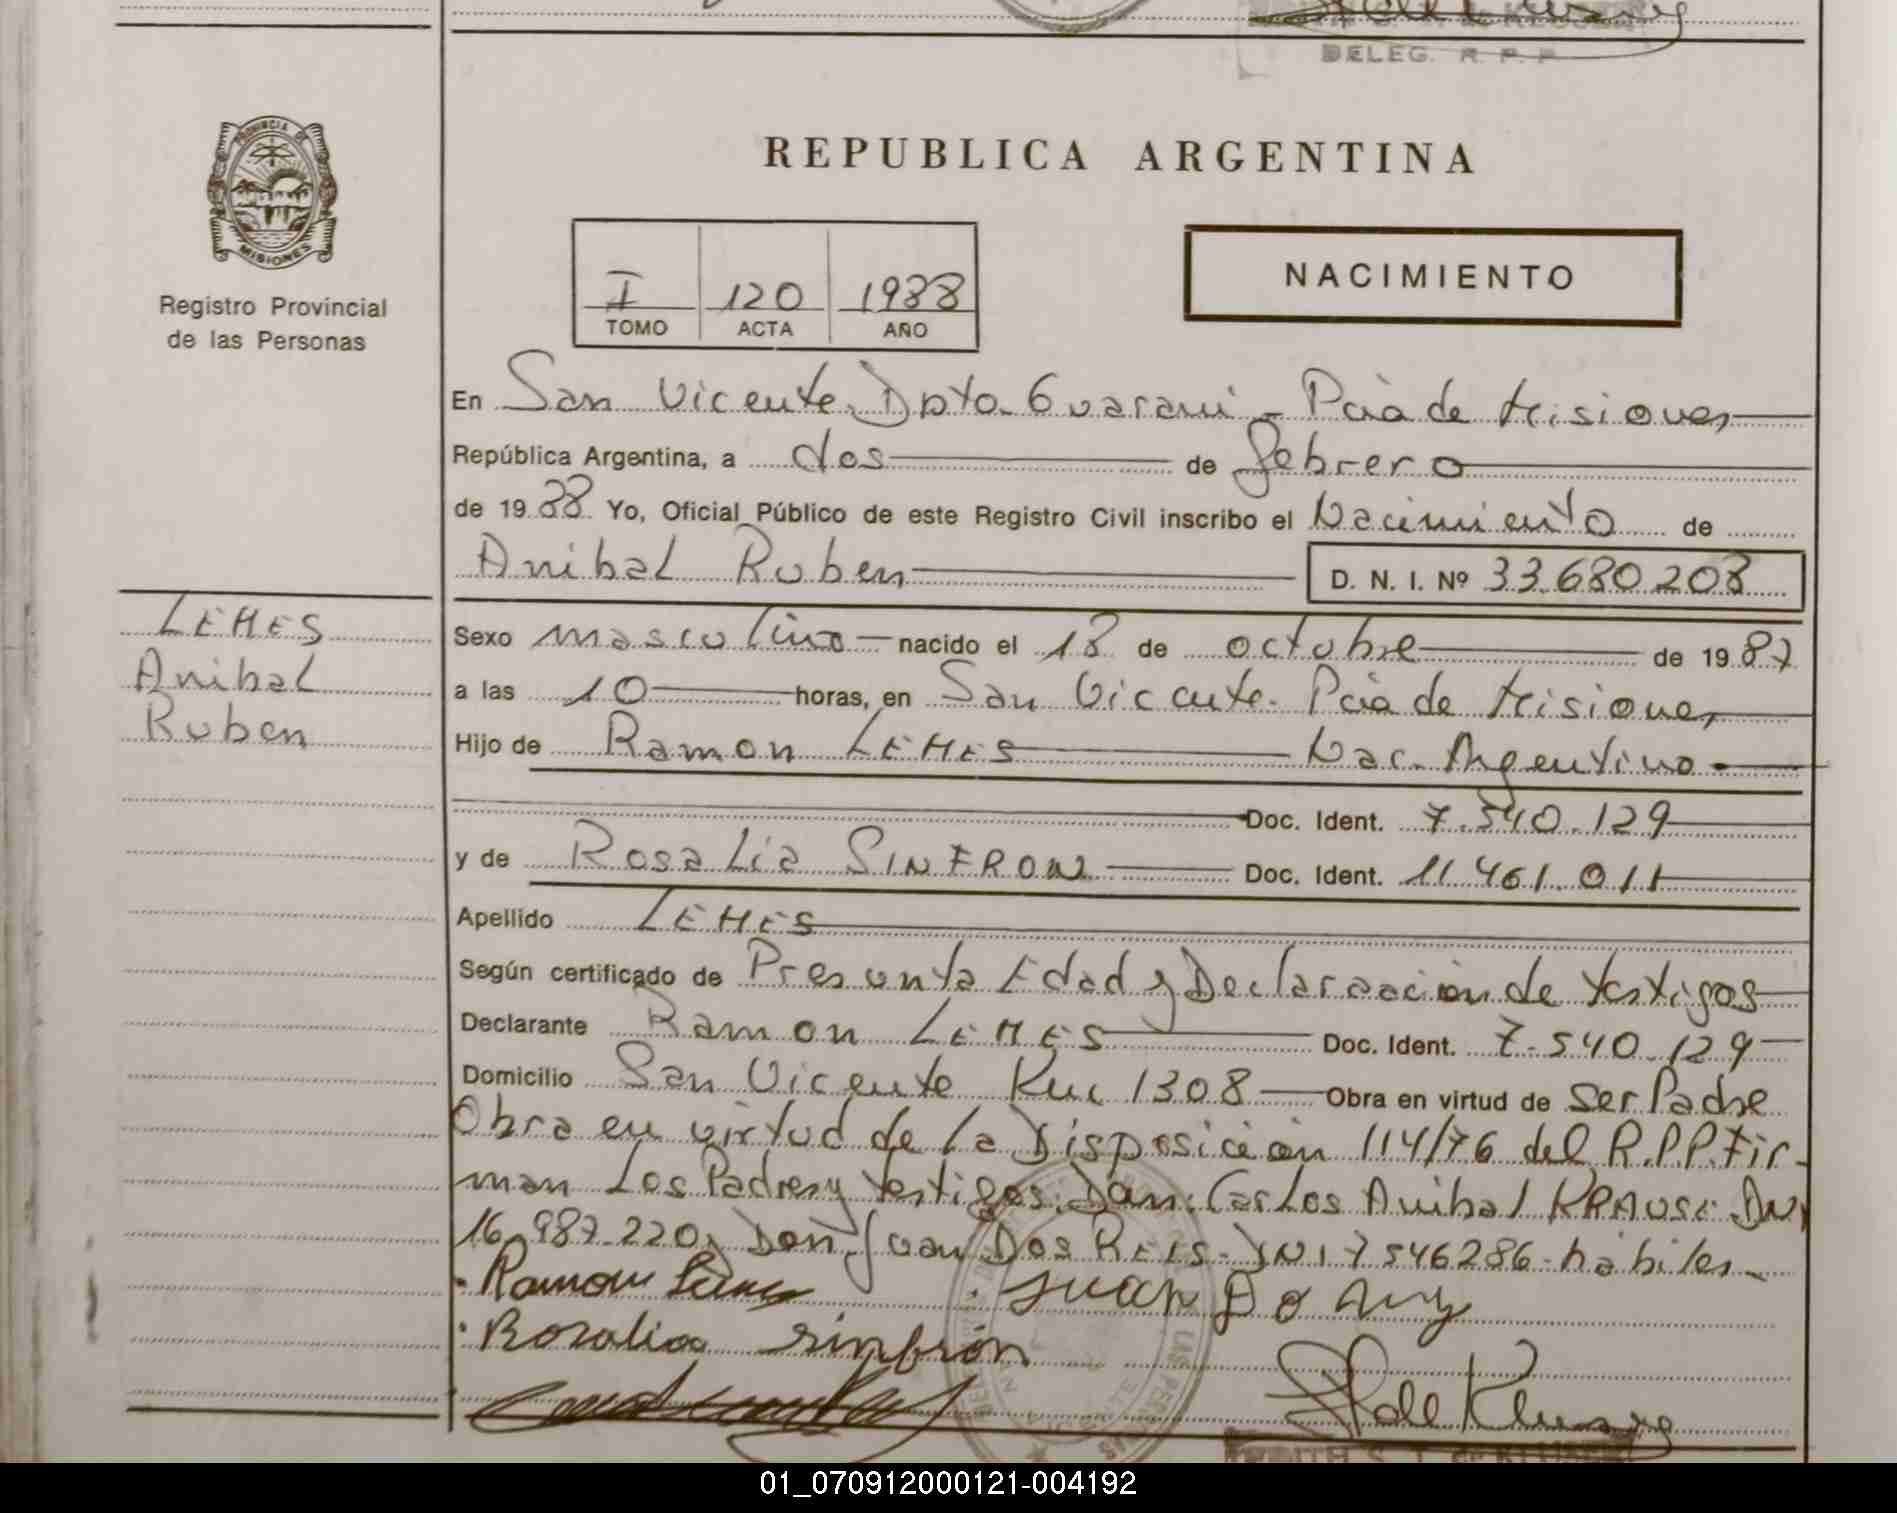 DELEG. R. P. P.
PROVINCIA DE
MISIONES
Registro Provincial
de las Personas
REPUBLICA ARGENTINA
I 120 1988
TOMO ACTA AÑO
NACIMIENTO
En San Vicente, Dpto. Guarani - Pcia de Misiones
República Argentina, a dos de febrero
de 1988 Yo, Oficial Público de este Registro Civil inscribo el Nacimiento de
Anibal Ruben D. N. I. Nº 33.680.208
LEMES
Anibal
Ruben
Sexo masculino nacido el 18 de octubre de 1987
a las 10 horas, en San Vicente. Pcia de Misiones
Hijo de Ramon LEMES Nac. Argentino
Doc. Ident. 7.540.129
y de Rosalia SINFRON Doc. Ident. 11.461.011
Apellido LEMES
Según certificado de Presunta Edad y Declaracion de testigos
Declarante Ramon LEMES Doc. Ident. 7.540.129
Domicilio San Vicente Km 1308 Obra en virtud de ser Padre
Obra en virtud de la Disposición 114/76 del R.P.P. Fir-
man Los Padres y testigos: Don: Carlos Anibal KRAUSE DNI
16.987.220 y Don Juan Dos REIS - DNI 7546286 - hábiles -
Ramon Lemes Juan Do
Rosalia Sinfrón
01_070912000121-004192